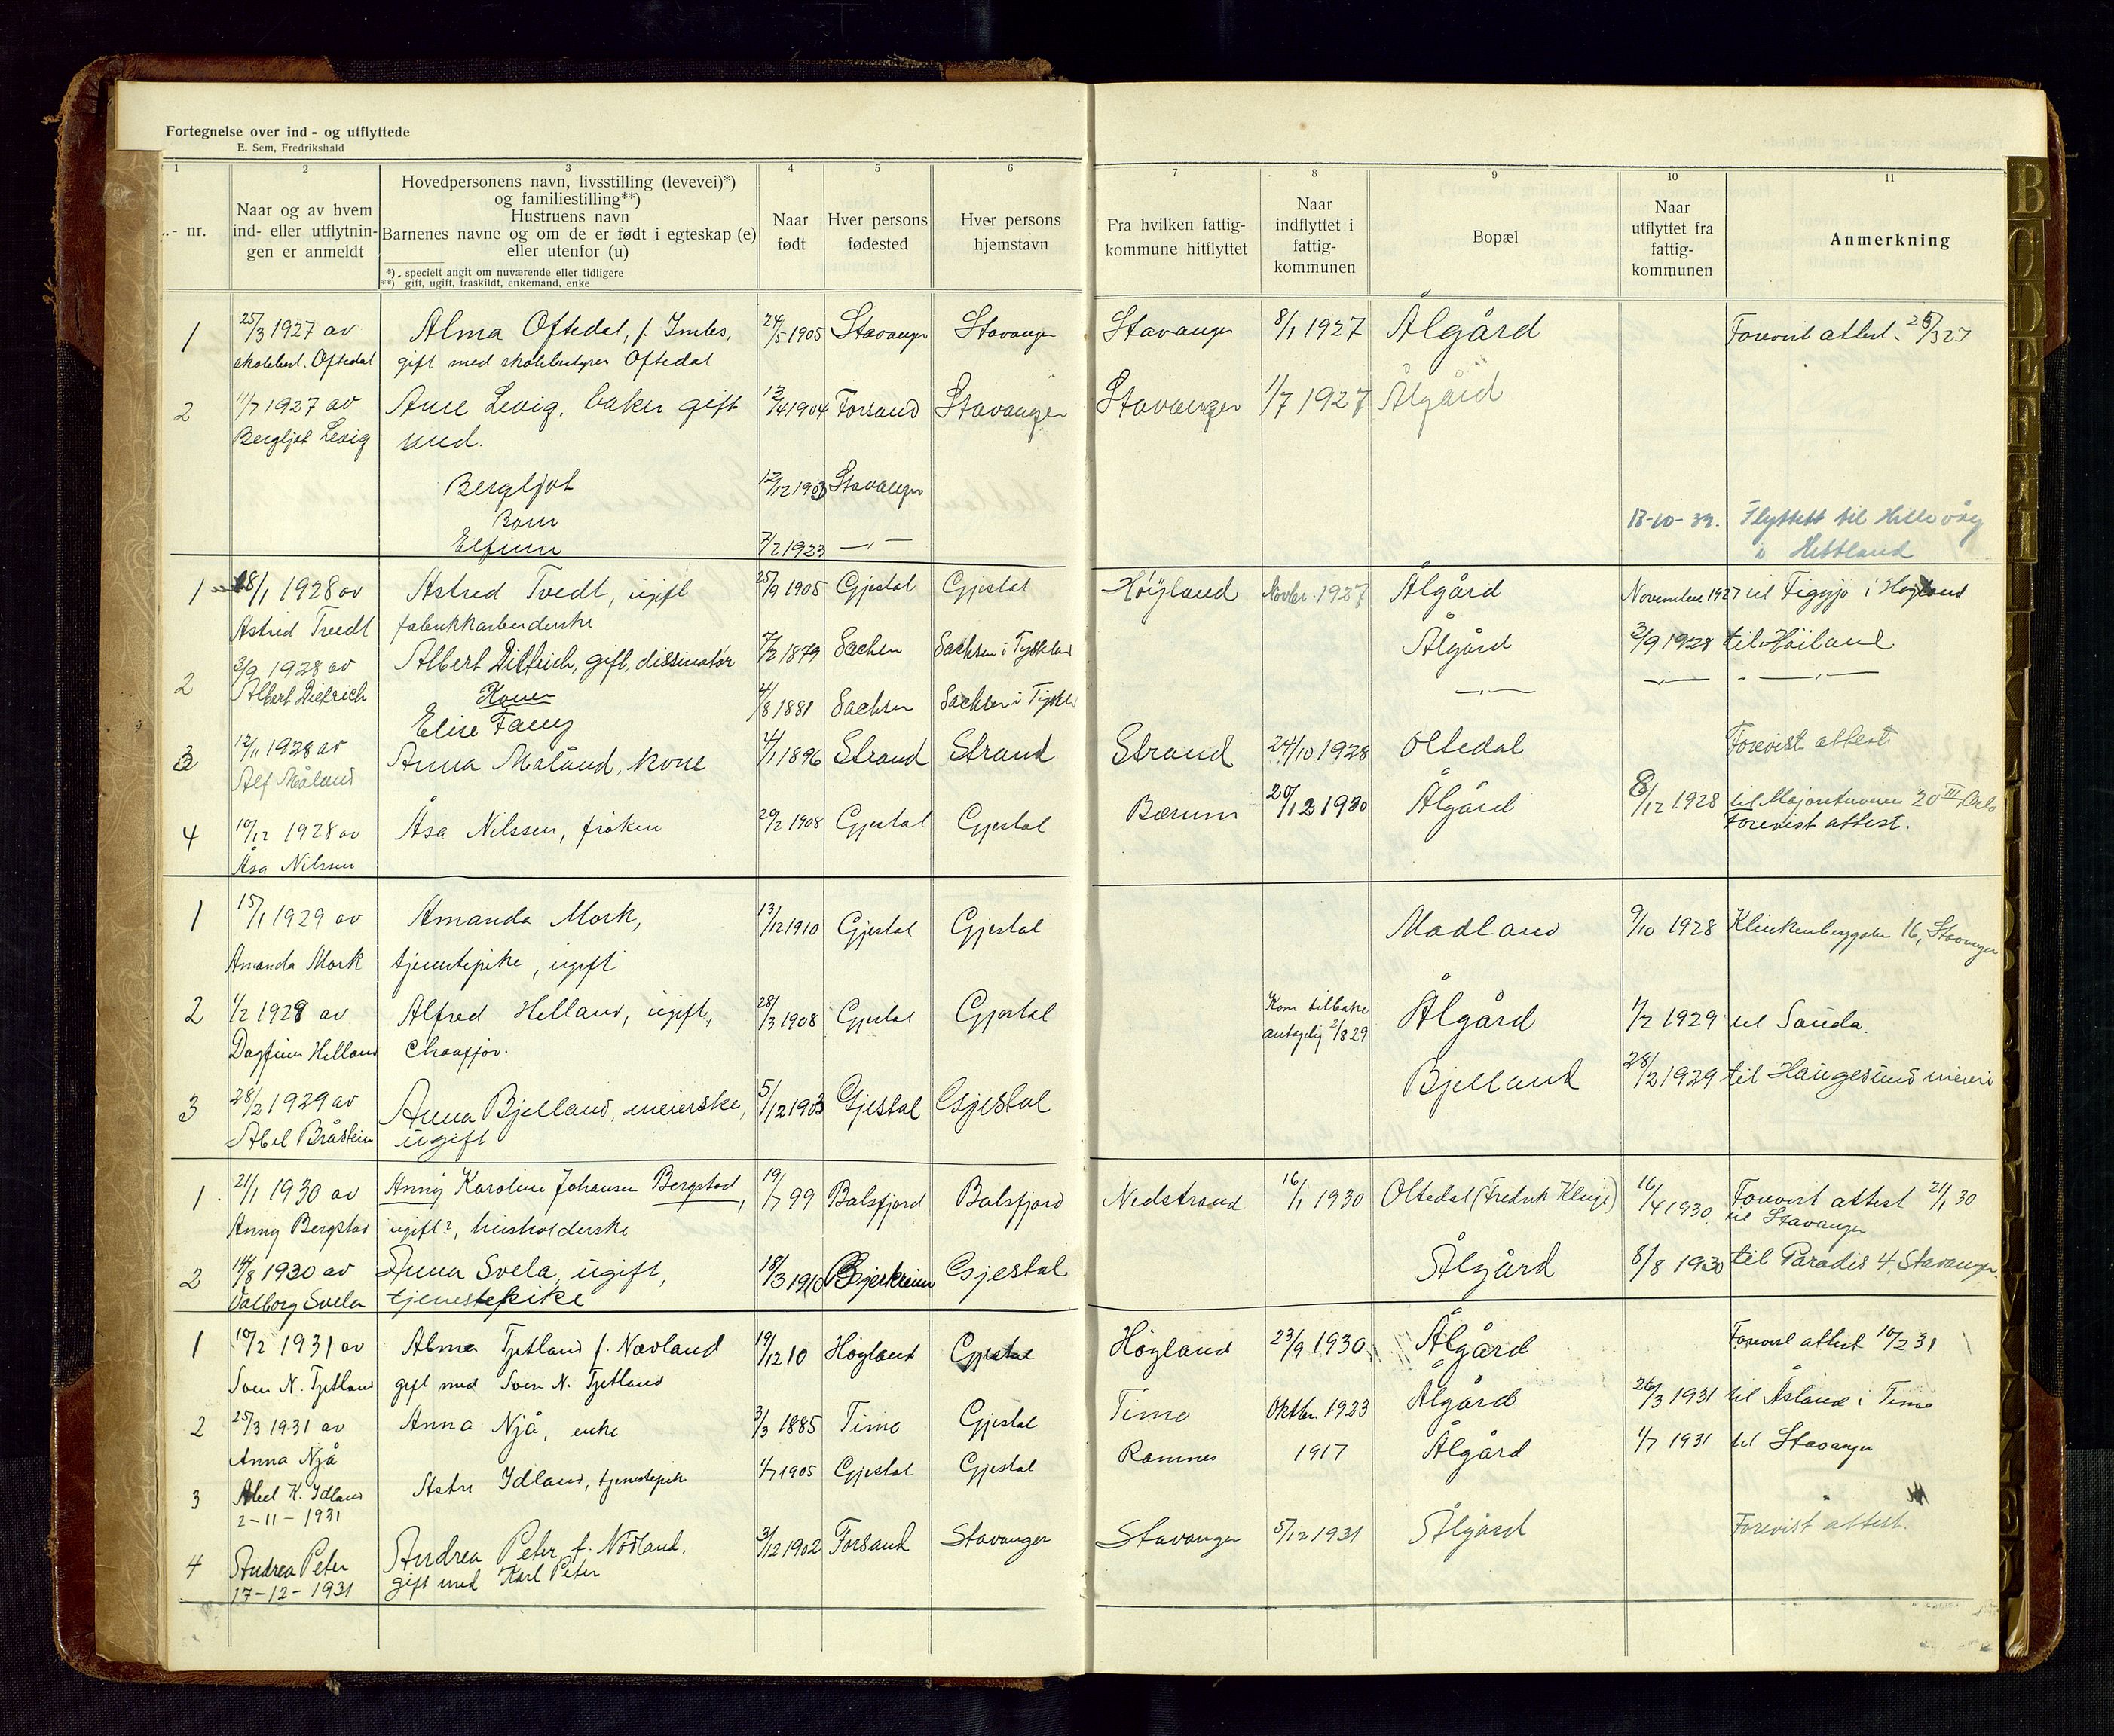 Fortegnelse over ind- og utflyttede
E. Sem, Fredrikshald
1 2 3 4 5 6 7 8 9 10 11
.- nr.
Naar og av hvem
ind- eller utflytnin-
gen er anmeldt
Hovedpersonens navn, livsstilling (levevei)*)
og familiestilling**)
Hustruens navn
Barnenes navne og om de er født i egteskap (e)
eller utenfor (u)
*) specielt angit om nuværende eller tidligere
**) gift, ugift, fraskildt, enkemand, enke
Naar
født
Hver persons
fødested
Hver persons
hjemstavn
Fra hvilken fattig-
kommune hitflyttet
Naar
indflyttet i
fattig-
kommunen
Bopæl
Naar
utflyttet fra
fattig-
kommunen
Anmerkning
1 25/3 1927 av Alma Oftedal, f. 24/5 1905 Stavanger Stavanger Stavanger 8/1 1927 Ålgård Forevist attest. 25/3 27
skolebest. Oftedal gift med skolebestyrer Oftedal
2 11/7 1927 av Levig, baker gift 12/4 1904 Forsand Stavanger Stavanger 1/7 1927 Ålgård
Bergljot Levig med.
Bergljot 12/12 1903 Stavanger
Barn 13-10-33. Flyttet til Hillevåg
Elfinn 7/2 1923 —"— i Hettland
1 18/1 1928 av Astrid Tvedt, ugift 25/9 1905 Gjestal Gjestal Høyland Novbr. 1927 Ålgård November 1927 til Figgjo i Høyland
Astrid Tvedt fabrikkarbeiderske
2 3/9 1928 av Albert Dietrich, gift, dessinatør 7/2 1879 Sachsen Sachsen i Tyskland Ålgård 3/9 1928 til Høiland
Albert Dietrich Konen —"— —"— —"—
Elise Fanny 4/8 1881 Sachsen Sachsen i Tyskl.
3 12/11 1928 av Anna Måland, kone 4/1 1896 Strand Strand Strand 24/10 1928 Oltedal Forevist attest.
Alf Måland
4 10/12 1928 av Åsa Nilssen, frøken 29/2 1908 Gjestal Gjestal Bærum 20/12 1930 Ålgård 8/12 1928 til Majorstuveien 20 III, Oslo
Åsa Nilssen Forevist attest.
1 15/1 1929 av Amanda Mork, 13/12 1910 Gjestal Gjestal Madland 9/10 1928 Klinkenberggaten 16, Stavanger
Amanda Mork tjenestepike, ugift
2 1/2 1929 av Alfred Helland, ugift, 28/3 1908 Gjestal Gjestal Kom tilbake Ålgård 1/2 1929 til Sauda.
Dagfinn Helland Chauffør. antagelig 2/8 29
3 28/2 1929 av Anna Bjelland, meierske, 5/12 1903 Gjestal Gjestal Bjelland 28/2 1929 til Haugesund meieri
Abel Bråstein ugift
1 21/1 1930 av Anny Karoline Johansen Bergstad, 19/7 99 Balsfjord Balsfjord Nedstrand 16/1 1930 Oltedal (Fredrik Kluge) 16/4 1930 Forevist attest 21/1 30
Anny Bergstad ugift?, husholderske til Stavanger
2 14/8 1930 av Anna Svela, ugift, 18/3 1910 Bjerkreim Gjestal Ålgård 8/8 1930 til Paradis 4. Stavanger.
Valborg Svela tjenestepike
1 10/2 1931 av Alma Tjetland f. Nævland 19/12 10 Høyland Gjestal Høyland 23/9 1930 Ålgård Forevist attest 10/2 31
Sven N. Tjetland gift med Sven N. Tjetland
2 25/3 1931 av Anna Njå, enke 3/3 1885 Time Gjestal Time Oktbr. 1923 Ålgård 26/3 1931 til Åsland i Time
Anna Njå
3 Abel K. Idland Idland, tjenestepike 1/7 1905 Gjestal Gjestal Ramnes 1917 Ålgård 1/7 1931 til Stavanger
2-11-1931
4 Andrea Peter Andrea Peter f. Nødland. 3/12 1902 Forsand Stavanger Stavanger 5/12 1931 Ålgård Forevist attest.
17-12-1931 gift med Karl Peter
B
C
D
E
F
G
H